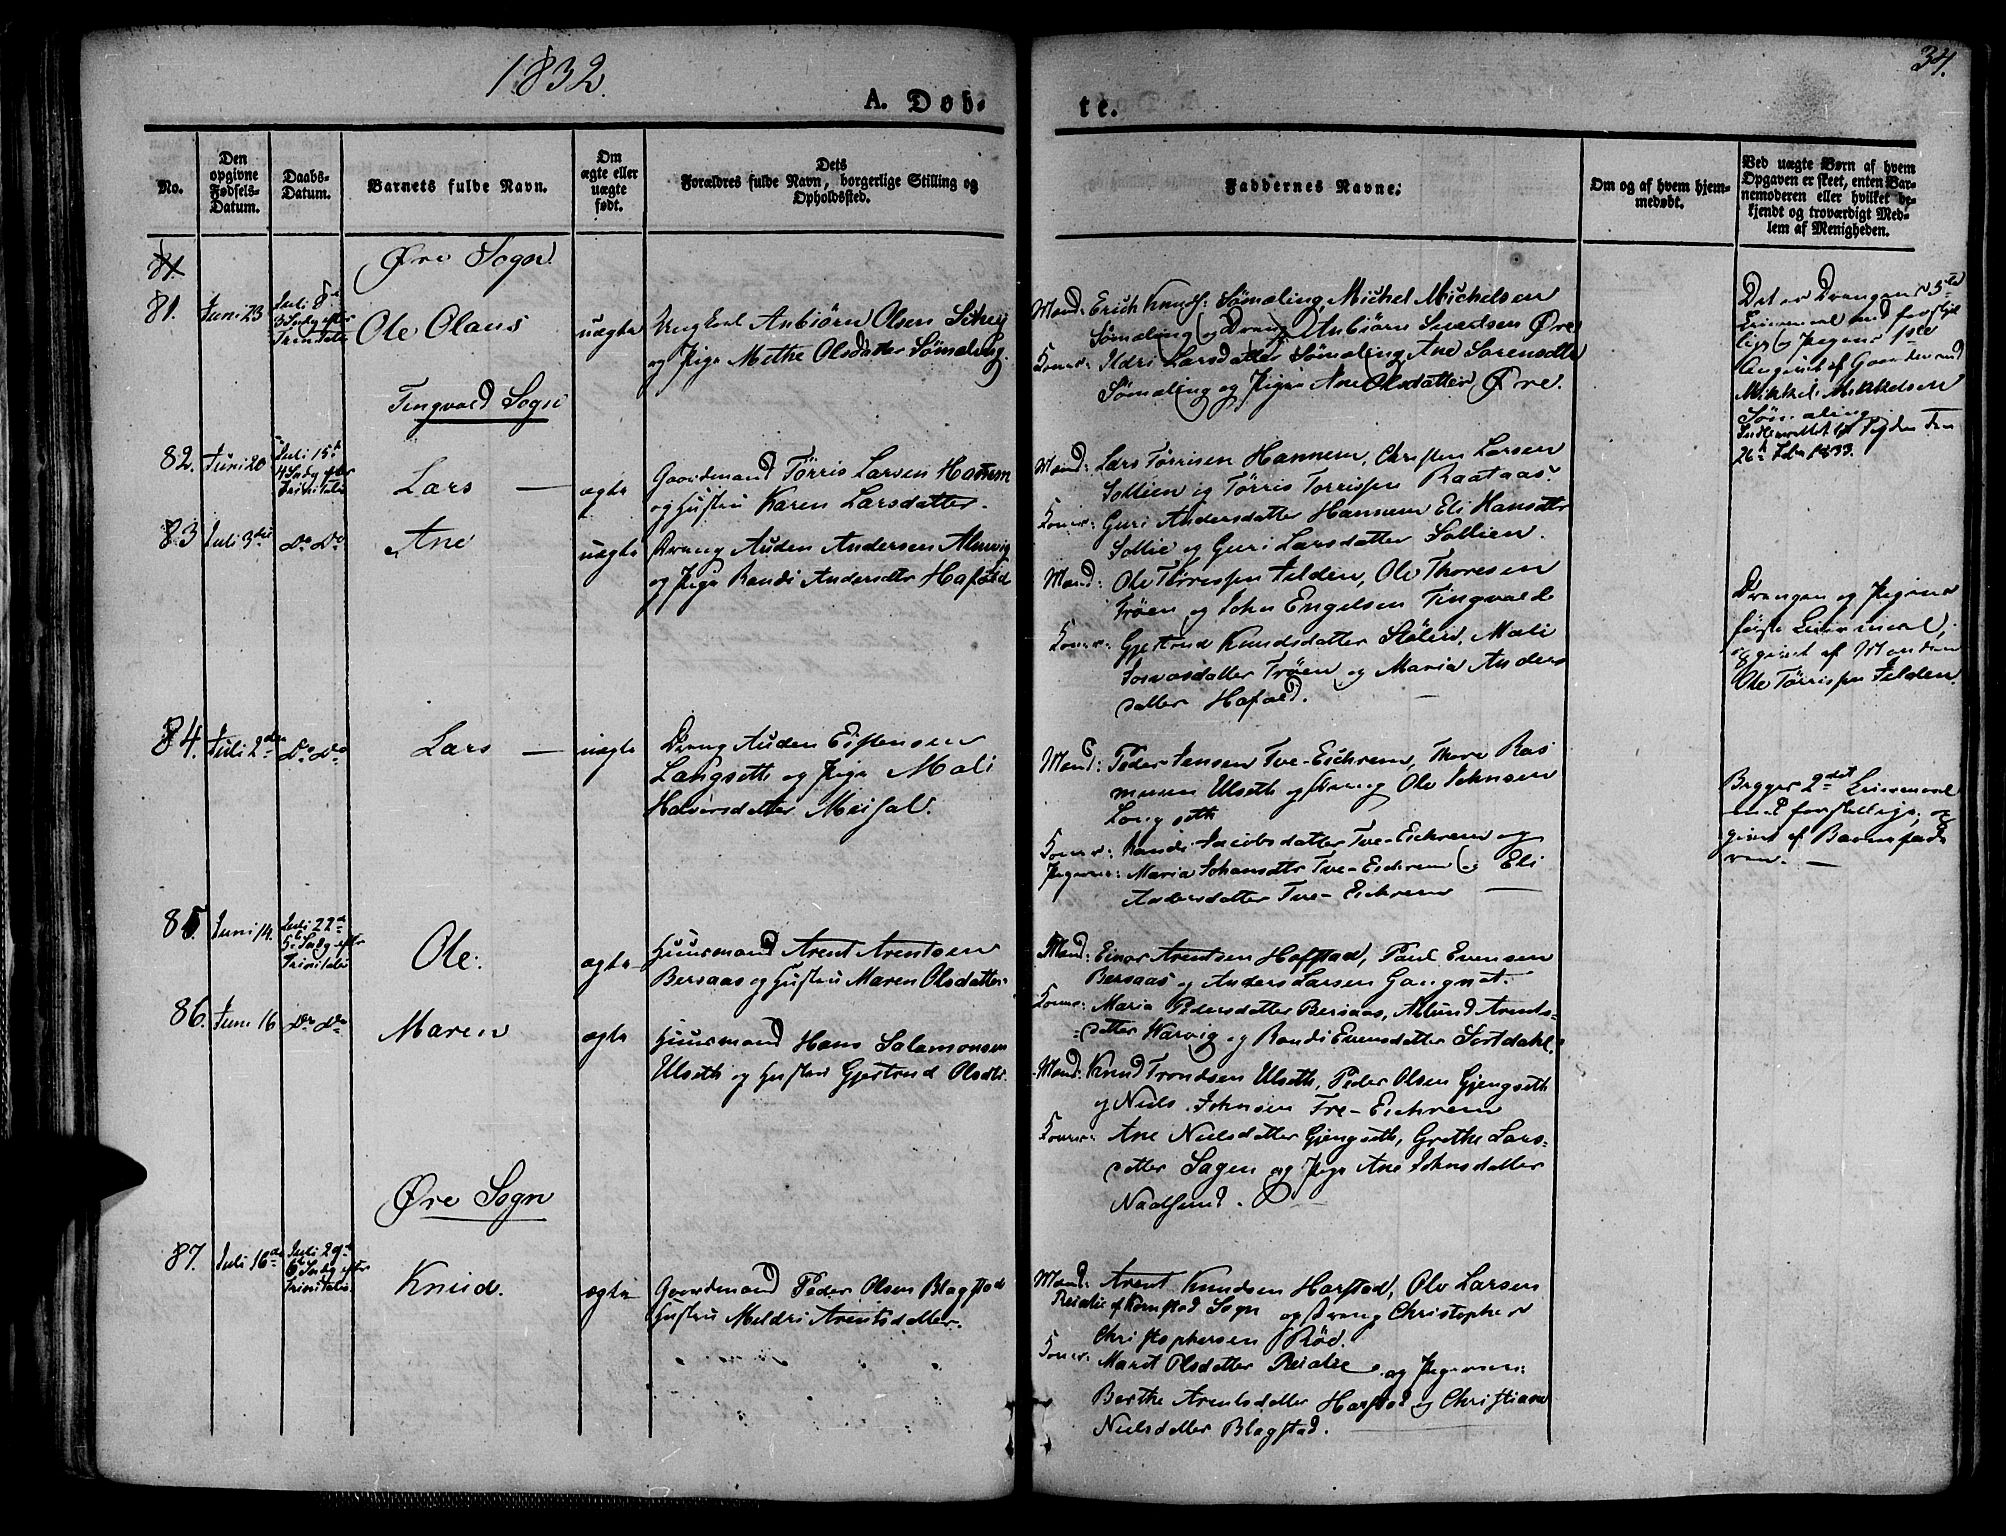 1832.
34.
A. Døb-
te.
No.
Den opgivne Fødsels-Datum.
Daabs-Datum.
Barnets fulde Navn.
Om ægte eller uægte født.
Dets Forældres fulde Navn, borgerlige Stilling og Opholdssted.
Faddernes Navne.
Om og af hvem hjem-medøbt.
Ved uægte Børn af hvem Opgaven er skeet, enten Bar-nemoderen eller hvilket be-kjendt og troværdigt Med-lem af Menigheden.
81.
Øre Sogn
81.
Juni 23
Juli 8de
3 Sndg efter
Trinitatis
Ole Olaus
uægte
Ungkarl Anbiørn Olsen
og Pige Methe Olsdatter Sømeling
Mænd: Erich Knuds: Sømeling, Michel Michelsen
Sømeling og Dreng Anbiørn Øre
Koner: Ildri Larsdatter Sømeling Ane Sørensdtr
Sømeling og Pige Ane Olsdatter, Øre.
Det er Drengens 5te
Leiermaal
og Pigens 1ste
Angivet af Gaardmand
Mikkel Mikkelsen
Sømeling
26de Febr 1833.
Tingvold Sogn
82.
Juni 20
Juli 15de
4 Sndg efter
Trinitatis
Lars —
ægte
Gaardmand Tørris Larsen Hanem
og Hustru Karen Larsdatter.
Mænd: Lars Tørrisen Hannem, Christen Larsen
Sollien og Tørris Torrissen Raataas.
Koner: Guri Andersdatter Hannem Eli Hansdtr
Sollie og Guri Larsdatter Sollien.
83
Juli 3die
Do Do
Ane
uægte
Dreng Auden Andersen Almvig
og Pige Randi Andersdtr Hafstad
Mænd: Ole Tørrissen Felden, Ole Thoresen
Trøen og John Engelsen Tingvolde
Koner: Gjertrud Knudsdatter Stølen, Mali
datter Trøen og Maria Anders
datter Hafsd.
Drengen og Pigens
første Leiermaal,
opgivet af Manden
Ole Tørrissen Felden.
84.
Juli 2den
Do Do
Lars —
uægte
Dreng Auden Eistensen
Langseth og Pige Mali
Halvorsdatter Meisal.
Mænd: Peder Jensen Tve-Eichrem, Thore Ras
mussen Ulseth og Dreng Ole Johnsen
Langseth
Koner: Randi Jacobsdatter Tve-Eichrem og
Pigerne: Maria Johansdtr Tve-Eichrem og Eli
Andersdatter Tve-Eichrem —
Begges 2det Leiermaal
med forskellige, op
givet af Barnefade
ren. —
85.
Juni 14.
Juli 22de
5 Sndg efter
Trinitatis
Ole.
ægte
Huusmand Arent Arentsen
Bersaas og Hustru Maren Olsdatter.
Mænd: Einar Arentsen Hafstad, Paul Evensen
Bersaas og Anders Larsen Gangnat.
Koner: Maria Pedersdatter Bersaas, Arents-
datter Warvig og Randi Evensdatter Sortdahl.
86.
Juni 16
Do Do
Maren
ægte
Huusmand Hans Salamonsen
Ulseth og Hustru Gjertrud Olsdtr.
Mænd: Knud Trondsen Ulseth, Peder Olsen Gjengseth
og Niels Johnsen Tre-Eichrem
Koner: Ane Nielsdatter Gjengseth, Grethe Lars-
datter Sagen og Pige Ane Johnsdatter
Naalsund.
Øre Sogn
87.
Juli 16de
Juli 29de
6 Sndg efter
Trinitatis.
Knud.
ægte
Gaardmand Peder Olsen Blagstad
Hustru Meldri Arentsdatter.
Mænd: Arent Knudsen Harstad, Ole Larsen
Reialie af Kornstad Sogn og Dreng Christopher
Christophersen Röd.
Koner: Marit Olsdatter Reialie og Pigerne:
Berthe Arentsdatter Harstad og Christiane
Nielsdatter Blagstad.